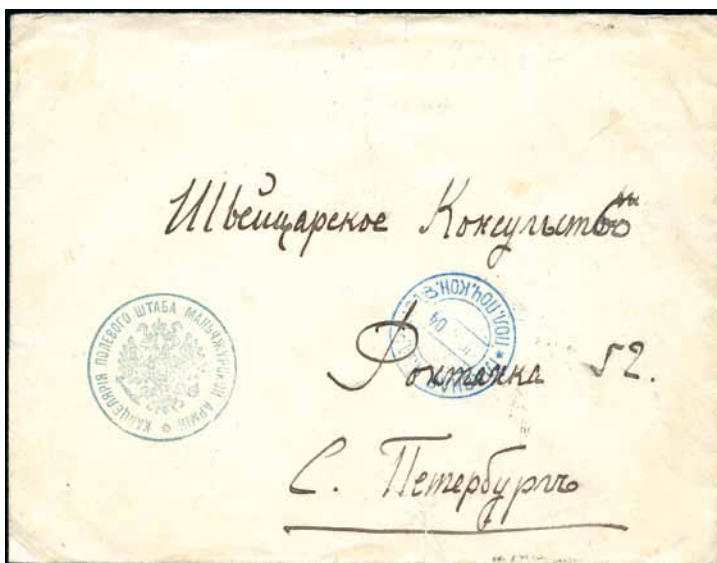 Швейцарское Консульство
КАНЦЕЛЯРІЯ ПОЛЕВОГО ШТАБА МАНЬЧЖУРСКОЙ АРМІИ
ПОЛ. ПОЧ. КОН.
04
Фонтанка 52.
С. Петербургъ